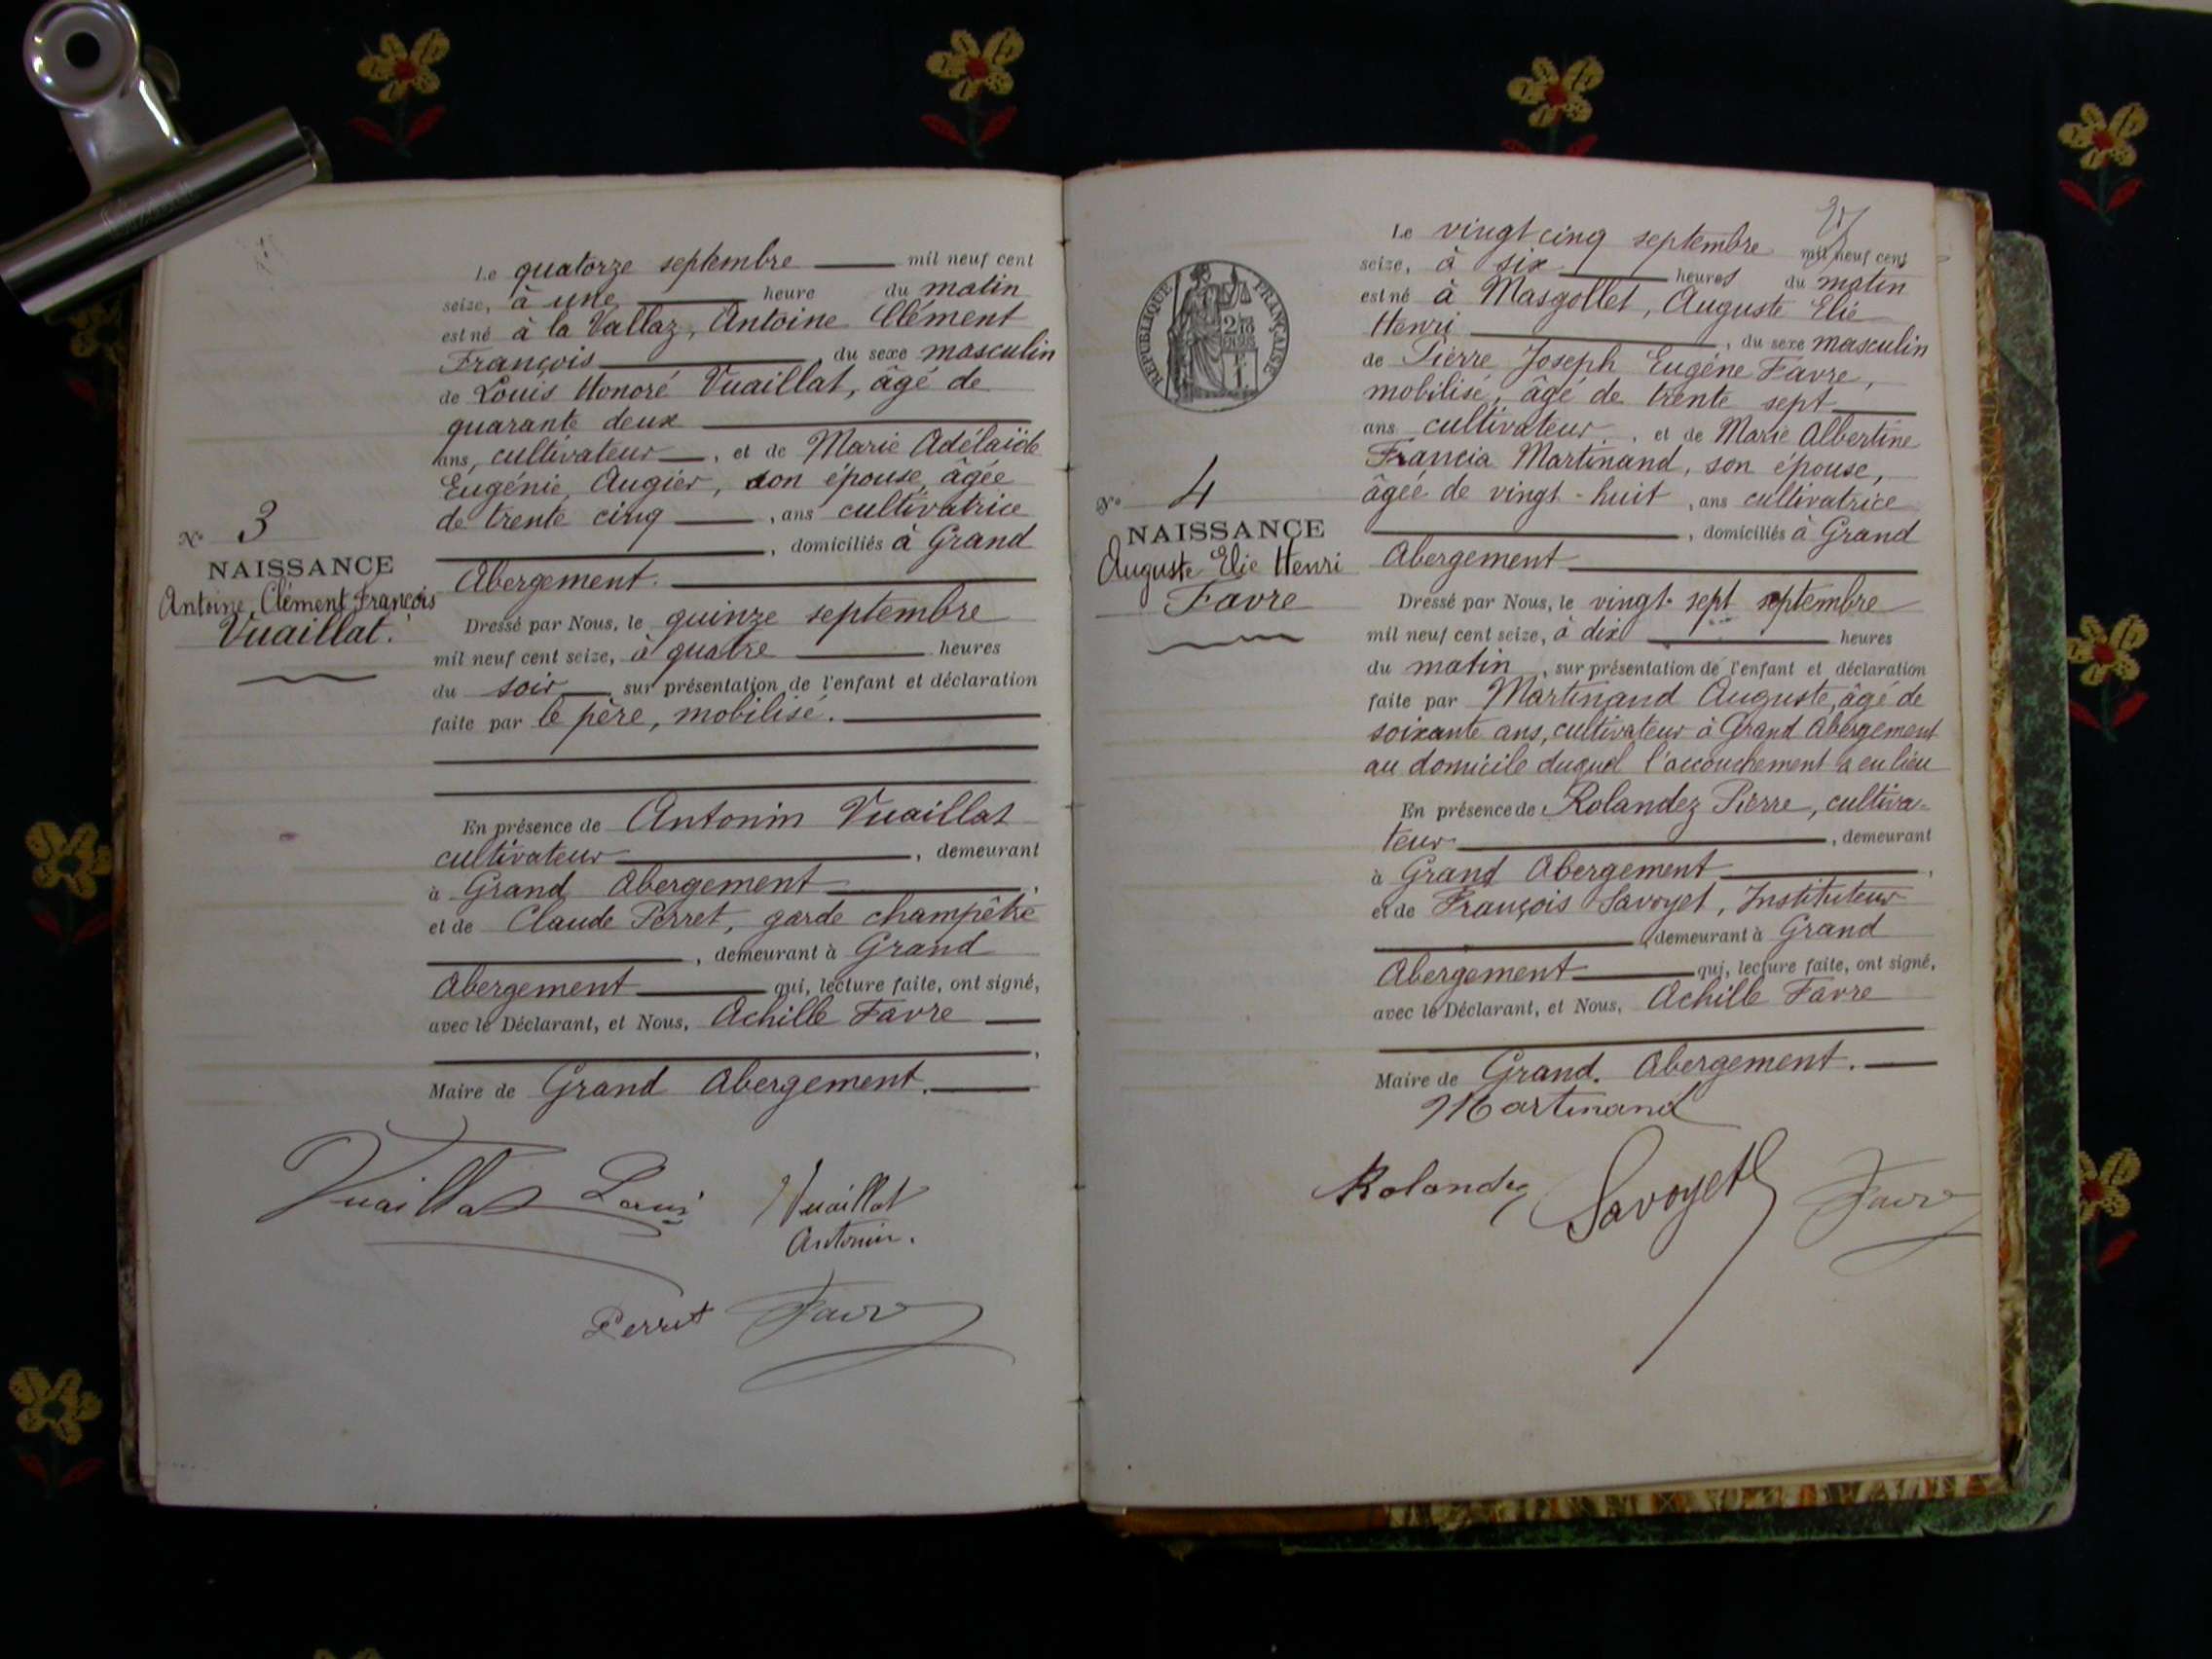 Le quatorze septembre mil neuf cent
seize, à une heure du matin
est né à la Vallaz, Antoine Clément
François, du sexe masculin
de Louis Honoré Vuaillat, âgé de
quarante deux
ans, cultivateur, et de Marie Adélaïde
Eugénie Augier, son épouse, âgée
de trente cinq, ans cultivatrice
, domiciliés à Grand
Abergement.
N° 3
NAISSANCE
Antoine, Clément François
Vuaillat.
Dressé par Nous, le quinze septembre
mil neuf cent seize, à quatre heures
du soir sur présentation de l'enfant et déclaration
faite par le père, mobilisé.
En présence de Antonin Vuaillat
cultivateur, demeurant
à Grand Abergement,
et de Claude Perret, garde champêtre
, demeurant à Grand
Abergement qui, lecture faite, ont signé,
avec le Déclarant, et Nous, Achille Favre
,
Maire de Grand Abergement.
Vuaillat Louis
Vuaillat
Antonin.
Perret Favre
RÉPUBLIQUE FRANÇAISE
Le vingt cinq septembre mil neuf cent
seize, à six heures du matin
est né à Masgollet, Auguste Elie
Henri, du sexe masculin
de Pierre Joseph Eugène Favre,
mobilisé, âgé de trente sept
ans cultivateur, et de Marie Albertine
Francia Martinand, son épouse,
âgée de vingt-huit, ans cultivatrice
, domiciliés à Grand
Abergement
N° 4
NAISSANCE
Auguste Elie Henri
Favre
Dressé par Nous, le vingt-sept septembre
mil neuf cent seize, à dix heures
du matin, sur présentation de l'enfant et déclaration
faite par Martinand Auguste, âgé de
soixante ans, cultivateur à Grand Abergement
au domicile duquel l'accouchement a eu lieu
En présence de Rolandez Pierre, cultiva-
teur, demeurant
à Grand Abergement,
et de François Savoyet, Instituteur
, demeurant à Grand
Abergement qui, lecture faite, ont signé,
avec le Déclarant, et Nous, Achille Favre
Maire de Grand. Abergement.
Martinand
Rolandez Savoyet Favre